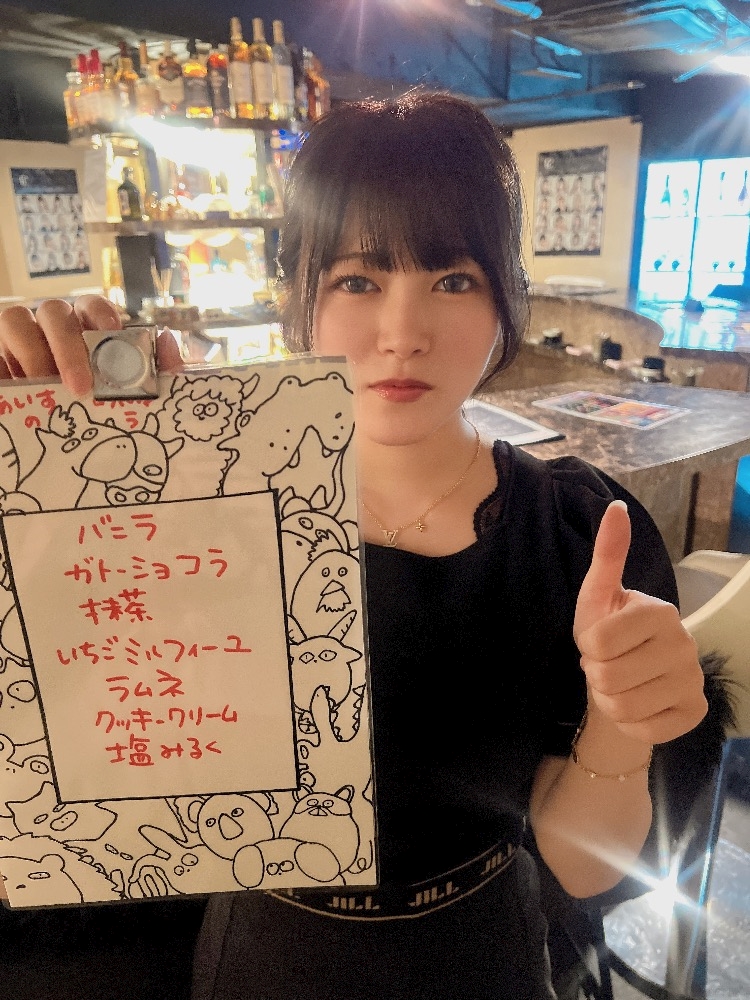 あいす
の
バニラ
ガトーショコラ
抹茶
いちごミルフィーユ
ラムネ
クッキークリーム
塩みるく
JILL JILL JILL